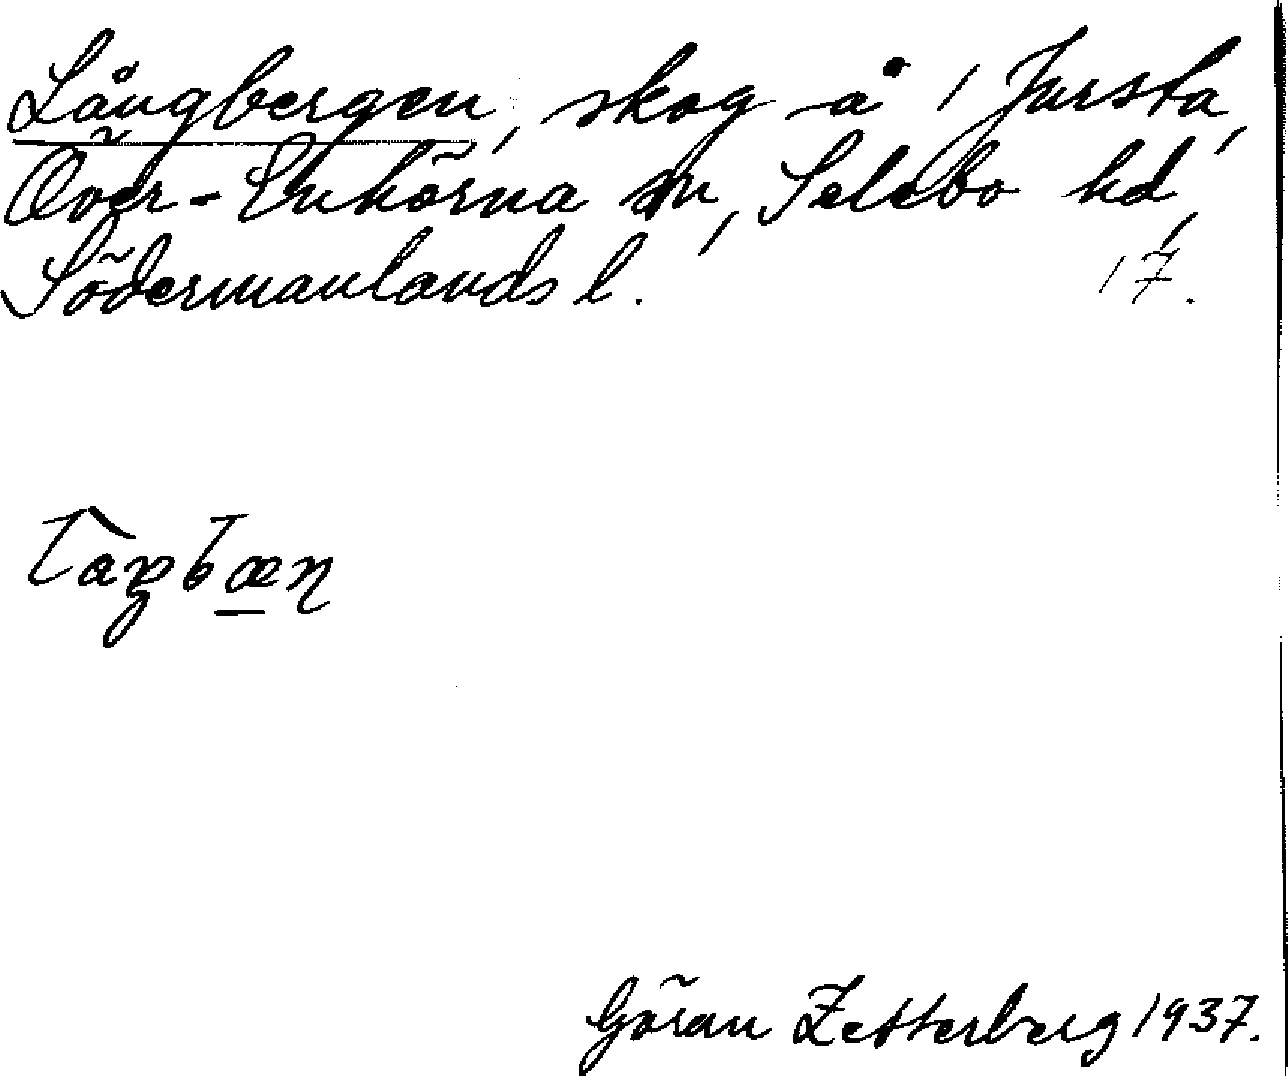 Långbergen, skog å / Jursta,
Över-Enhörna sn, Selebo hd,
Södermanlands l. 17.
Göran Zetterberg 1937.